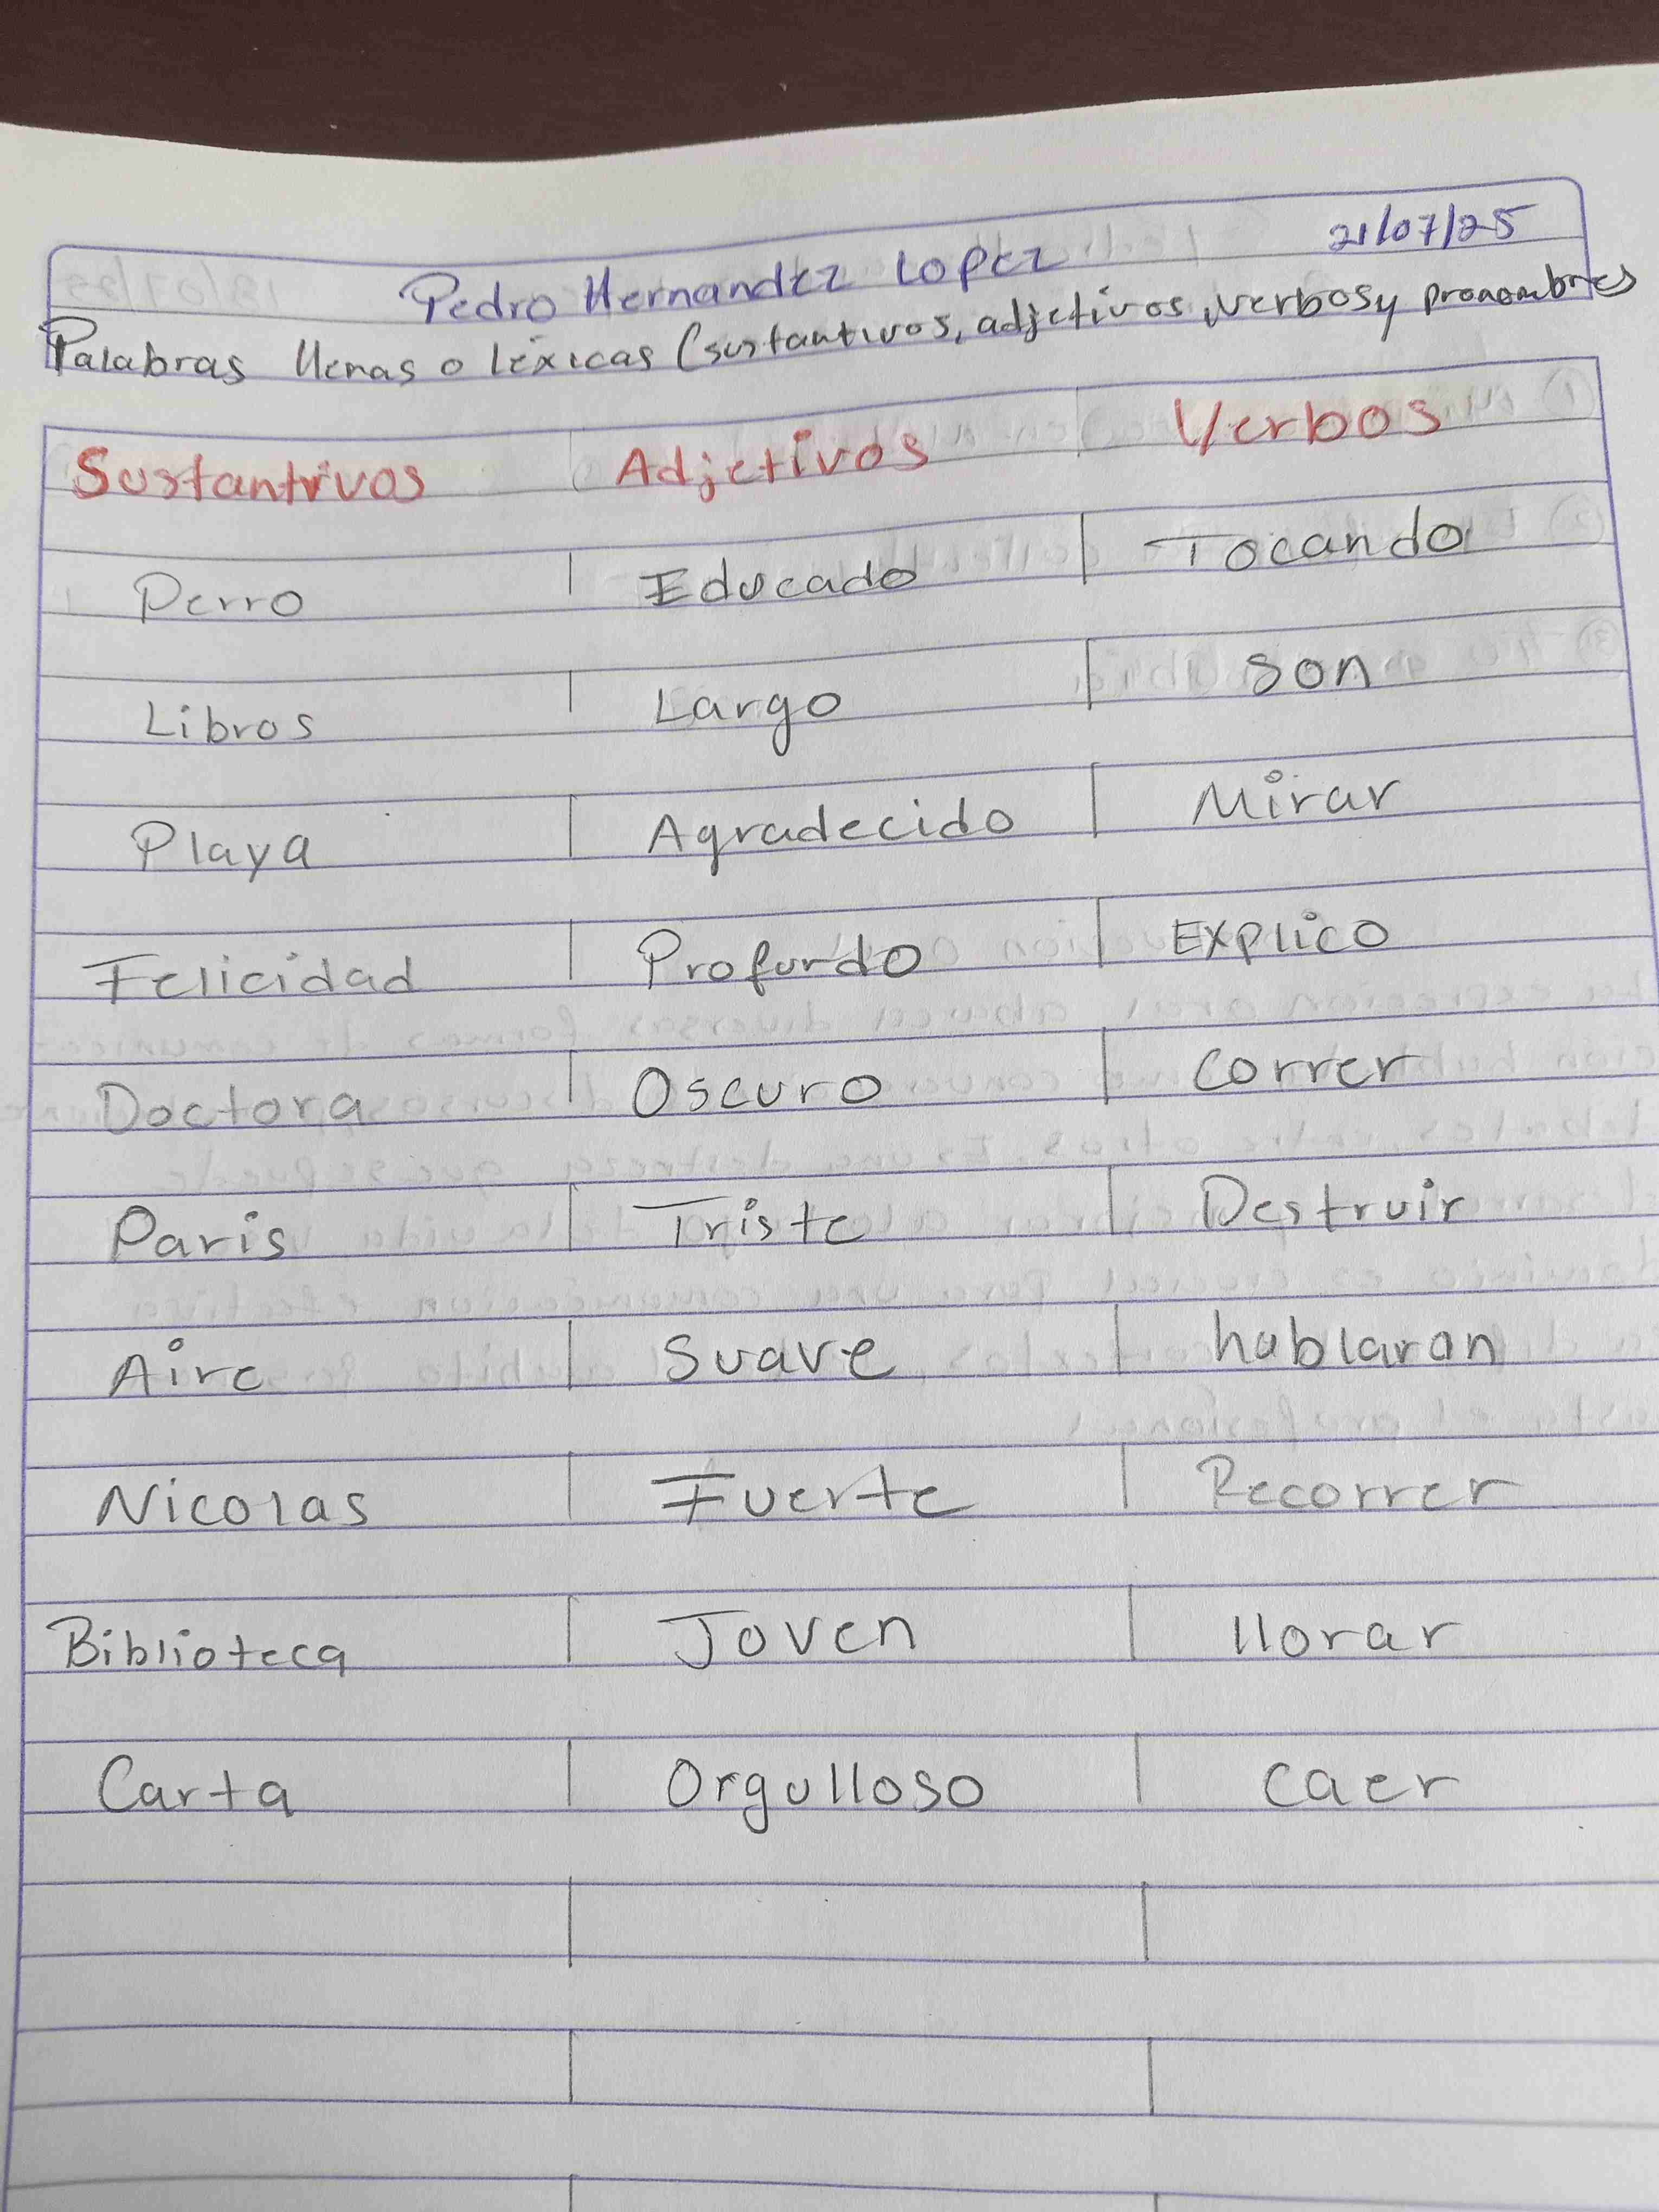 Pedro Hernandez Lopez 21/07/25
Palabras llenas o léxicas (sustantivos, adjetivos, verbos y pronombres
Sustantivos Adjetivos Verbos
Perro Educado Tocando
Libros Largo son
Playa Agradecido Mirar
Felicidad Profundo Explico
Doctora Oscuro correr
Paris Triste Destruir
Aire Suave hablaron
Nicolas Fuerte Recorrer
Biblioteca Joven llorar
Carta Orgulloso caer